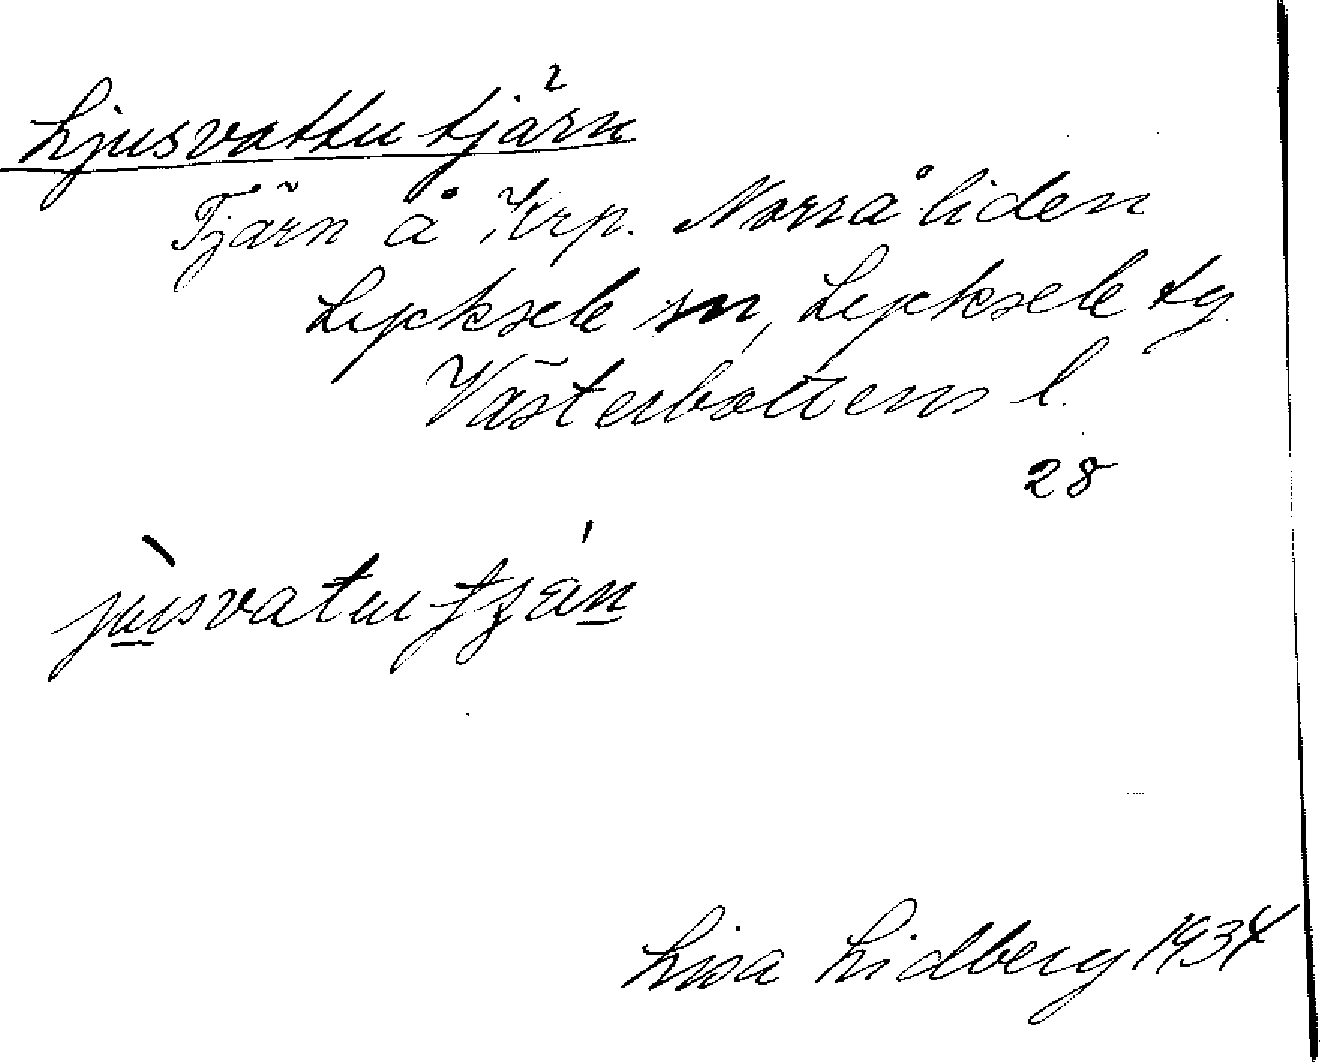 Ljusvattutjärn
Tjärn å Krp. Norråliden
Lycksele sn, Lycksele tg.
Västerbottens l.
28
jusvatutjän
Lisa Lidberg 1934